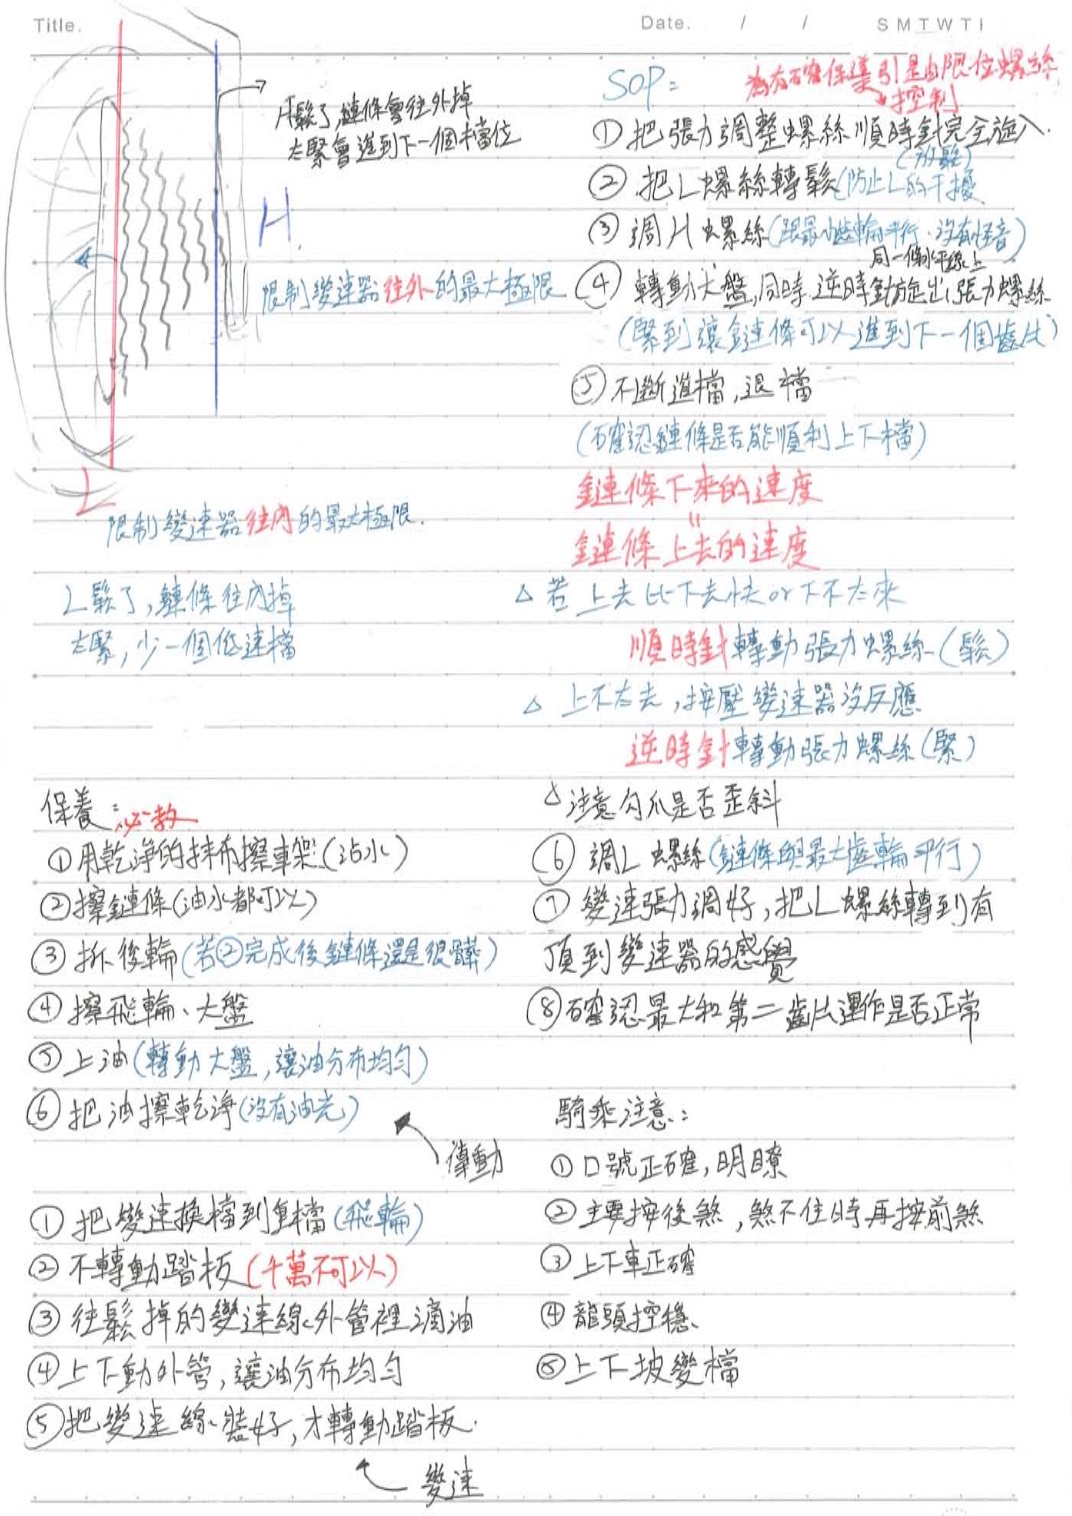 Title.
Date. / /
S M T W T F
H鬆了,鏈條會往外掉
太緊會進到下一個檔位
H
限制變速器往外的最大極限
L
限制變速器往內的最大極限.
L鬆了,鏈條往內掉
太緊,少一個低速檔
SOP:
為有確保導引是由限位螺絲
控制
①把張力調整螺絲順時針完全旋入.
(放鬆)
②把L螺絲轉鬆(防止L的干擾
③調H螺絲(跟最小齒輪平行、沒有怪音)
同一條水平線上
④轉動大盤,同時逆時針旋出張力螺絲
(緊到讓鏈條可以進到下一個齒片)
⑤不斷進檔,退檔
(確認鏈條是否能順利上下檔)
鏈條下來的速度
=
鏈條上去的速度
△若上去比下去快or下不太來
順時針轉動張力螺絲(鬆)
△上不太去,按壓變速器沒反應
逆時針轉動張力螺絲(緊)
△注意勾爪是否歪斜
⑥調L螺絲(鏈條與最大齒輪平行)
⑦變速張力調好,把L螺絲轉到有
頂到變速器的感覺
⑧確認最大和第二齒片運作是否正常
保養:必教
①用乾淨的抹布擦車架(沾水)
②擦鏈條(油水都可以)
③拆後輪(若②完成後鏈條還是很髒)
④擦飛輪、大盤
⑤上油(轉動大盤,讓油分布均勻)
⑥把油擦乾淨(沒有油光)
傳動
①把變速換檔到重檔(飛輪)
②不轉動踏板(千萬不可以)
③往鬆掉的變速線外管裡滴油
④上下動外管,讓油分布均勻
⑤把變速線裝好,才轉動踏板.
變速
騎乘注意:
①口號正確,明瞭
②主要按後煞,煞不住時再按前煞
③上下車正確
④龍頭控穩
⑤上下坡變檔